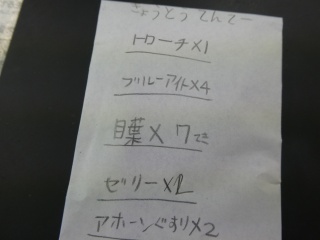 きょうとう てんてー
トローチ×1
ブルーアイト×4
目薬×7で
ゼリー×1
アホーンぐすり×2